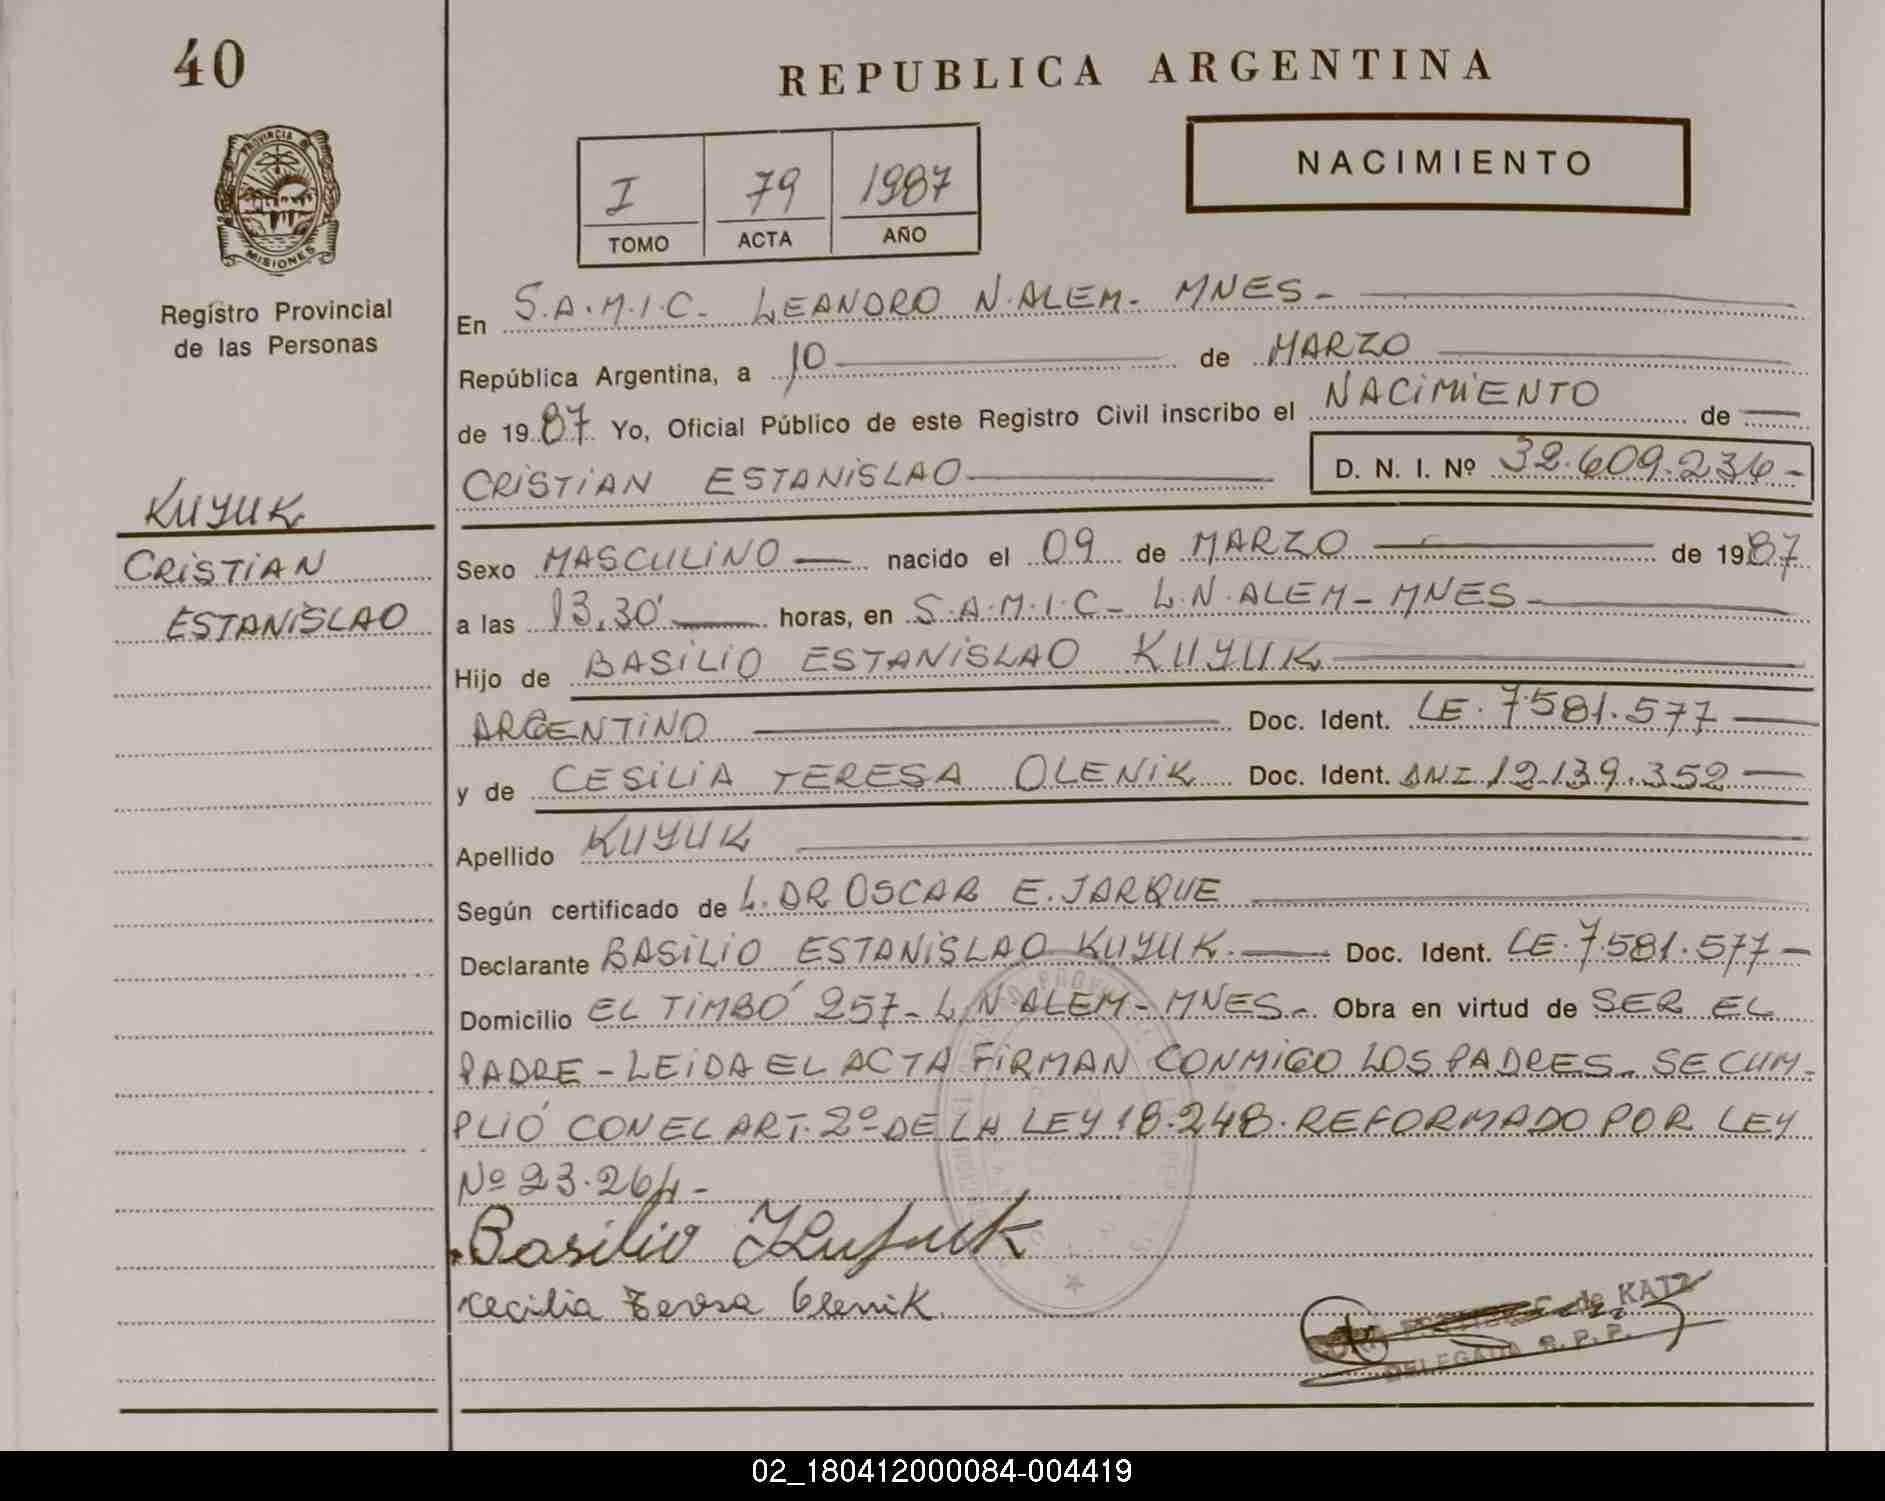 40
REPUBLICA ARGENTINA
PROVINCIA DE
MISIONES
Registro Provincial
de las Personas
NACIMIENTO
I 79 1987
TOMO ACTA AÑO
En S.A.M.I.C. LEANDRO N. ALEM - MNES -
República Argentina, a 10 de MARZO
de 1987 Yo, Oficial Público de este Registro Civil inscribo el NACIMIENTO de
CRISTIAN ESTANISLAO D. N. I. Nº 32.609.234 -
KUYUK
CRISTIAN
ESTANISLAO
Sexo MASCULINO nacido el 09 de MARZO de 1987
a las 13,30' horas, en S.A.M.I.C - L.N. ALEM - MNES -
Hijo de BASILIO ESTANISLAO KUYUK
ARGENTINO Doc. Ident. LE. 7.581.577
y de CESILIA TERESA OLENIK Doc. Ident. DNI 12.139.352
Apellido KUYUK
Según certificado de L. DR OSCAR E. JARQUE
Declarante BASILIO ESTANISLAO KUYUK. Doc. Ident. LE. 7.581.577 -
Domicilio EL TIMBÓ 257 - L.N ALEM - MNES - Obra en virtud de SER EL
PADRE - LEIDA EL ACTA FIRMAN CONMIGO LOS PADRES - SE CUM-
PLIÓ CON EL ART. 2º DE LA LEY 18.248. REFORMADO POR LEY
Nº 23.264 -
Basilio Kuyuk
Cecilia Teresa Olenik
de KATZ
DELEGADA R. P. P.
02_180412000084-004419